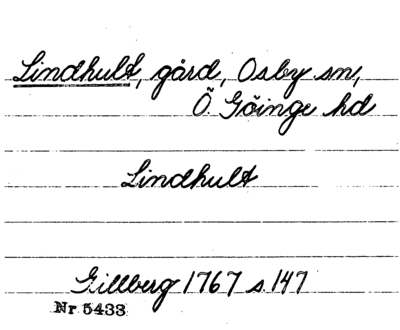 Lindhult, gård, Osby sn,
Ö. Göinge hd
Lindhult
Gillberg 1767 s. 147
Nr 5433